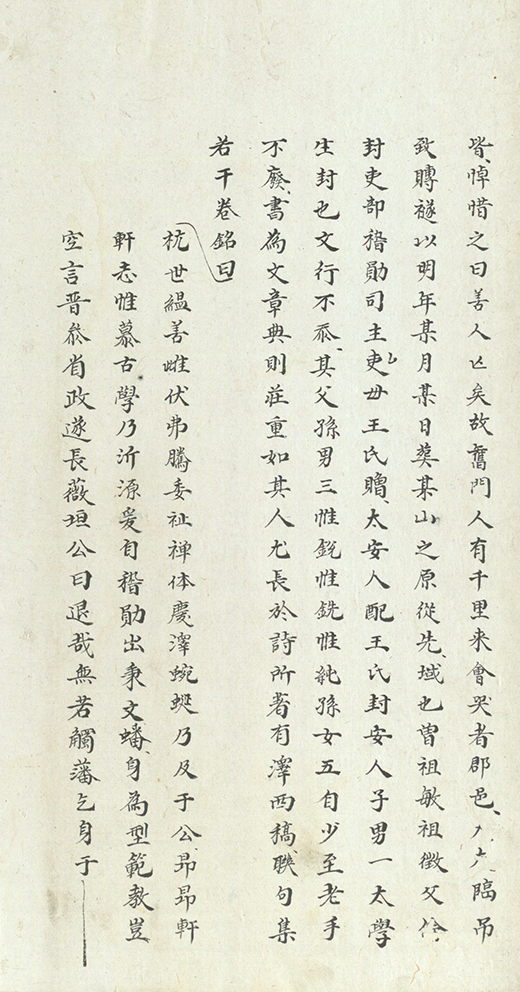 皆悼惜之曰善人亡矣故舊門人有千里来會哭者郡邑大夫臨吊
致賻襚以明年某月某日葬某山之原從先域也曾祖敏祖徵父
封吏部稽勛司主吏母王氏贈太安人配王氏封安人子男一太學
生封也文行不忝其父孫男三惟銳惟銑惟純孫女五自少至老手
不廢書為文章典則莊重如其人尤長於詩所著有澤西稿联句集
若干卷銘曰
杭世緼善雌伏弗騰委祉禪休慶澤蜿蜒乃及于公昂昂軒
軒志惟慕古學乃泝源爰自稽勛出秉文蟠身為型範教豈
空言晋叅省政遂長薇垣公曰退哉無若觸藩乞身于